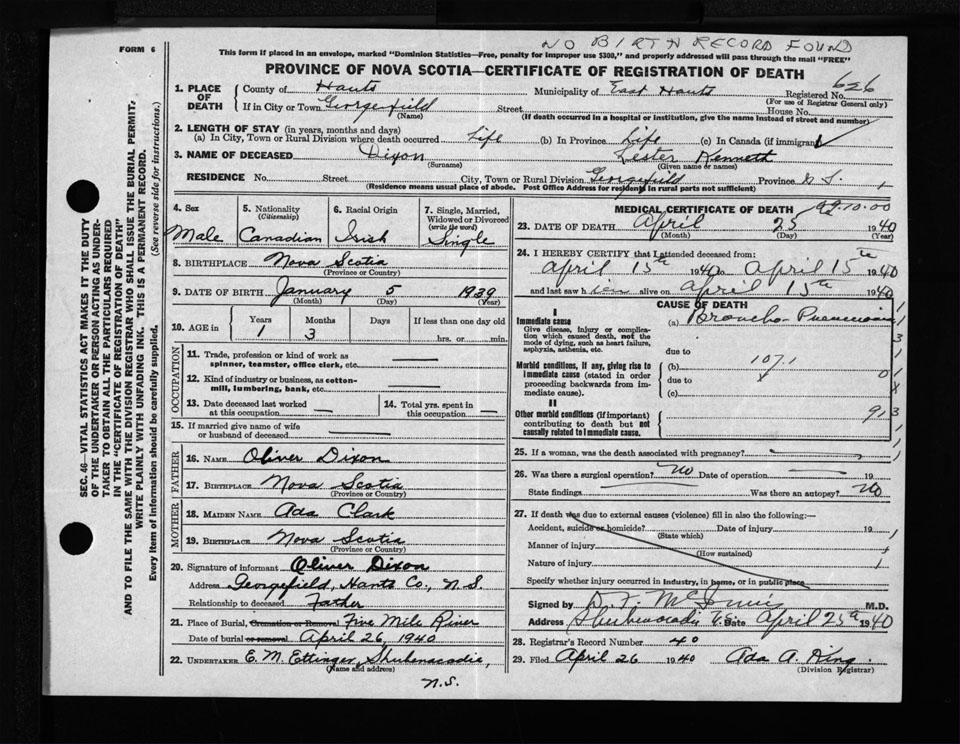 NO BIRTH RECORD FOUND
FORM 6
This form if placed in an envelope, marked "Dominion Statistics—Free, penalty for improper use $300," and properly addressed will pass through the mail "FREE"
PROVINCE OF NOVA SCOTIA—CERTIFICATE OF REGISTRATION OF DEATH
626
1. PLACE OF DEATH
County of Hants Municipality of East Hants Registered No.
(For use of Registrar General only)
If in City or Town Georgefield Street House No.
(Name) (If death occurred in a hospital or institution, give the name instead of street and number)
2. LENGTH OF STAY (in years, months and days)
(a) In City, Town or Rural Division where death occurred Life (b) In Province Life (c) In Canada (if immigrant)
3. NAME OF DECEASED Dixon Lester Kenneth
(Surname) (Given name or names)
RESIDENCE No. Street City, Town or Rural Division Georgefield Province N.S.
(Residence means usual place of abode. Post Office Address for residents in rural parts not sufficient)
4. Sex 5. Nationality 6. Racial Origin 7. Single, Married,
(Citizenship) Widowed or Divorced
(write the word)
Male Canadian Irish Single
8. BIRTHPLACE Nova Scotia
(Province or Country)
9. DATE OF BIRTH January 5 1939
(Month) (Day) (Year)
10. AGE in Years Months Days If less than one day old
1 3 hrs. or min.
OCCUPATION
11. Trade, profession or kind of work as
spinner, teamster, office clerk, etc.
12. Kind of industry or business, as cotton-
mill, lumbering, bank, etc.
13. Date deceased last worked
at this occupation
14. Total yrs. spent in
this occupation
15. If married give name of wife
or husband of deceased
FATHER
16. NAME Oliver Dixon
17. BIRTHPLACE Nova Scotia
(Province or Country)
MOTHER
18. MAIDEN NAME Ada Clark
19. BIRTHPLACE Nova Scotia
(Province or Country)
20. Signature of informant Oliver Dixon
Address Georgefield, Hants Co., N.S.
Relationship to deceased Father
21. Place of Burial, Cremation or Removal Five Mile River
Date of burial or removal April 26, 1940
22. UNDERTAKER E. M. Ettinger, Shubenacadie,
(Name and address)
N.S.
MEDICAL CERTIFICATE OF DEATH
23. DATE OF DEATH April 25 1940
(Month) (Day) (Year)
24. I HEREBY CERTIFY that I attended deceased from:
April 15th 1940 to April 15th 1940
and last saw h alive on April 15th 1940
CAUSE OF DEATH
I
Immediate cause (a) Broncho-Pneumonia
Give disease, injury or complica-
tion which caused death, not the
mode of dying, such as heart failure,
asphyxia, asthenia, etc.
due to
Morbid conditions, if any, giving rise to (b) 107.1
immediate cause (stated in order due to
proceeding backwards from im-
mediate cause). (c)
II
Other morbid conditions (if important)
contributing to death but not
causally related to immediate cause.
25. If a woman, was the death associated with pregnancy?
26. Was there a surgical operation? No Date of operation 19
State findings Was there an autopsy? No
27. If death was due to external causes (violence) fill in also the following:
Accident, suicide or homicide? Date of injury 19
(State which)
Manner of injury
(How sustained)
Nature of injury
Specify whether injury occurred in industry, in home, or in public place
Signed by M.D.
Address Shubenacadie N.S. Date April 25th 1940
28. Registrar's Record Number 40
29. Filed April 26 1940 Ada A. King
(Division Registrar)
SEC. 46—VITAL STATISTICS ACT MAKES IT THE DUTY
OF THE UNDERTAKER OR PERSON ACTING AS UNDER-
TAKER TO OBTAIN ALL THE PARTICULARS REQUIRED
IN THE "CERTIFICATE OF REGISTRATION OF DEATH"
AND TO FILE THE SAME WITH THE DIVISION REGISTRAR WHO SHALL ISSUE THE BURIAL PERMIT.
WRITE PLAINLY WITH UNFADING INK. THIS IS A PERMANENT RECORD.
Every item of information should be carefully supplied. (See reverse side for instructions.)